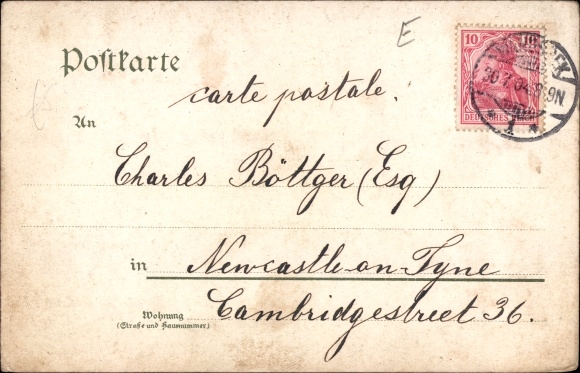 E
10
Postkarte
carte postale.
DEUTSCHES REICH
30.7.04. 8-9N
* 1 *
An
Charles Böttger (Esq)
in Newcastle-on-Tyne
Wohnung
(Straße und Hausnummer)
Cambridgestreet 36.